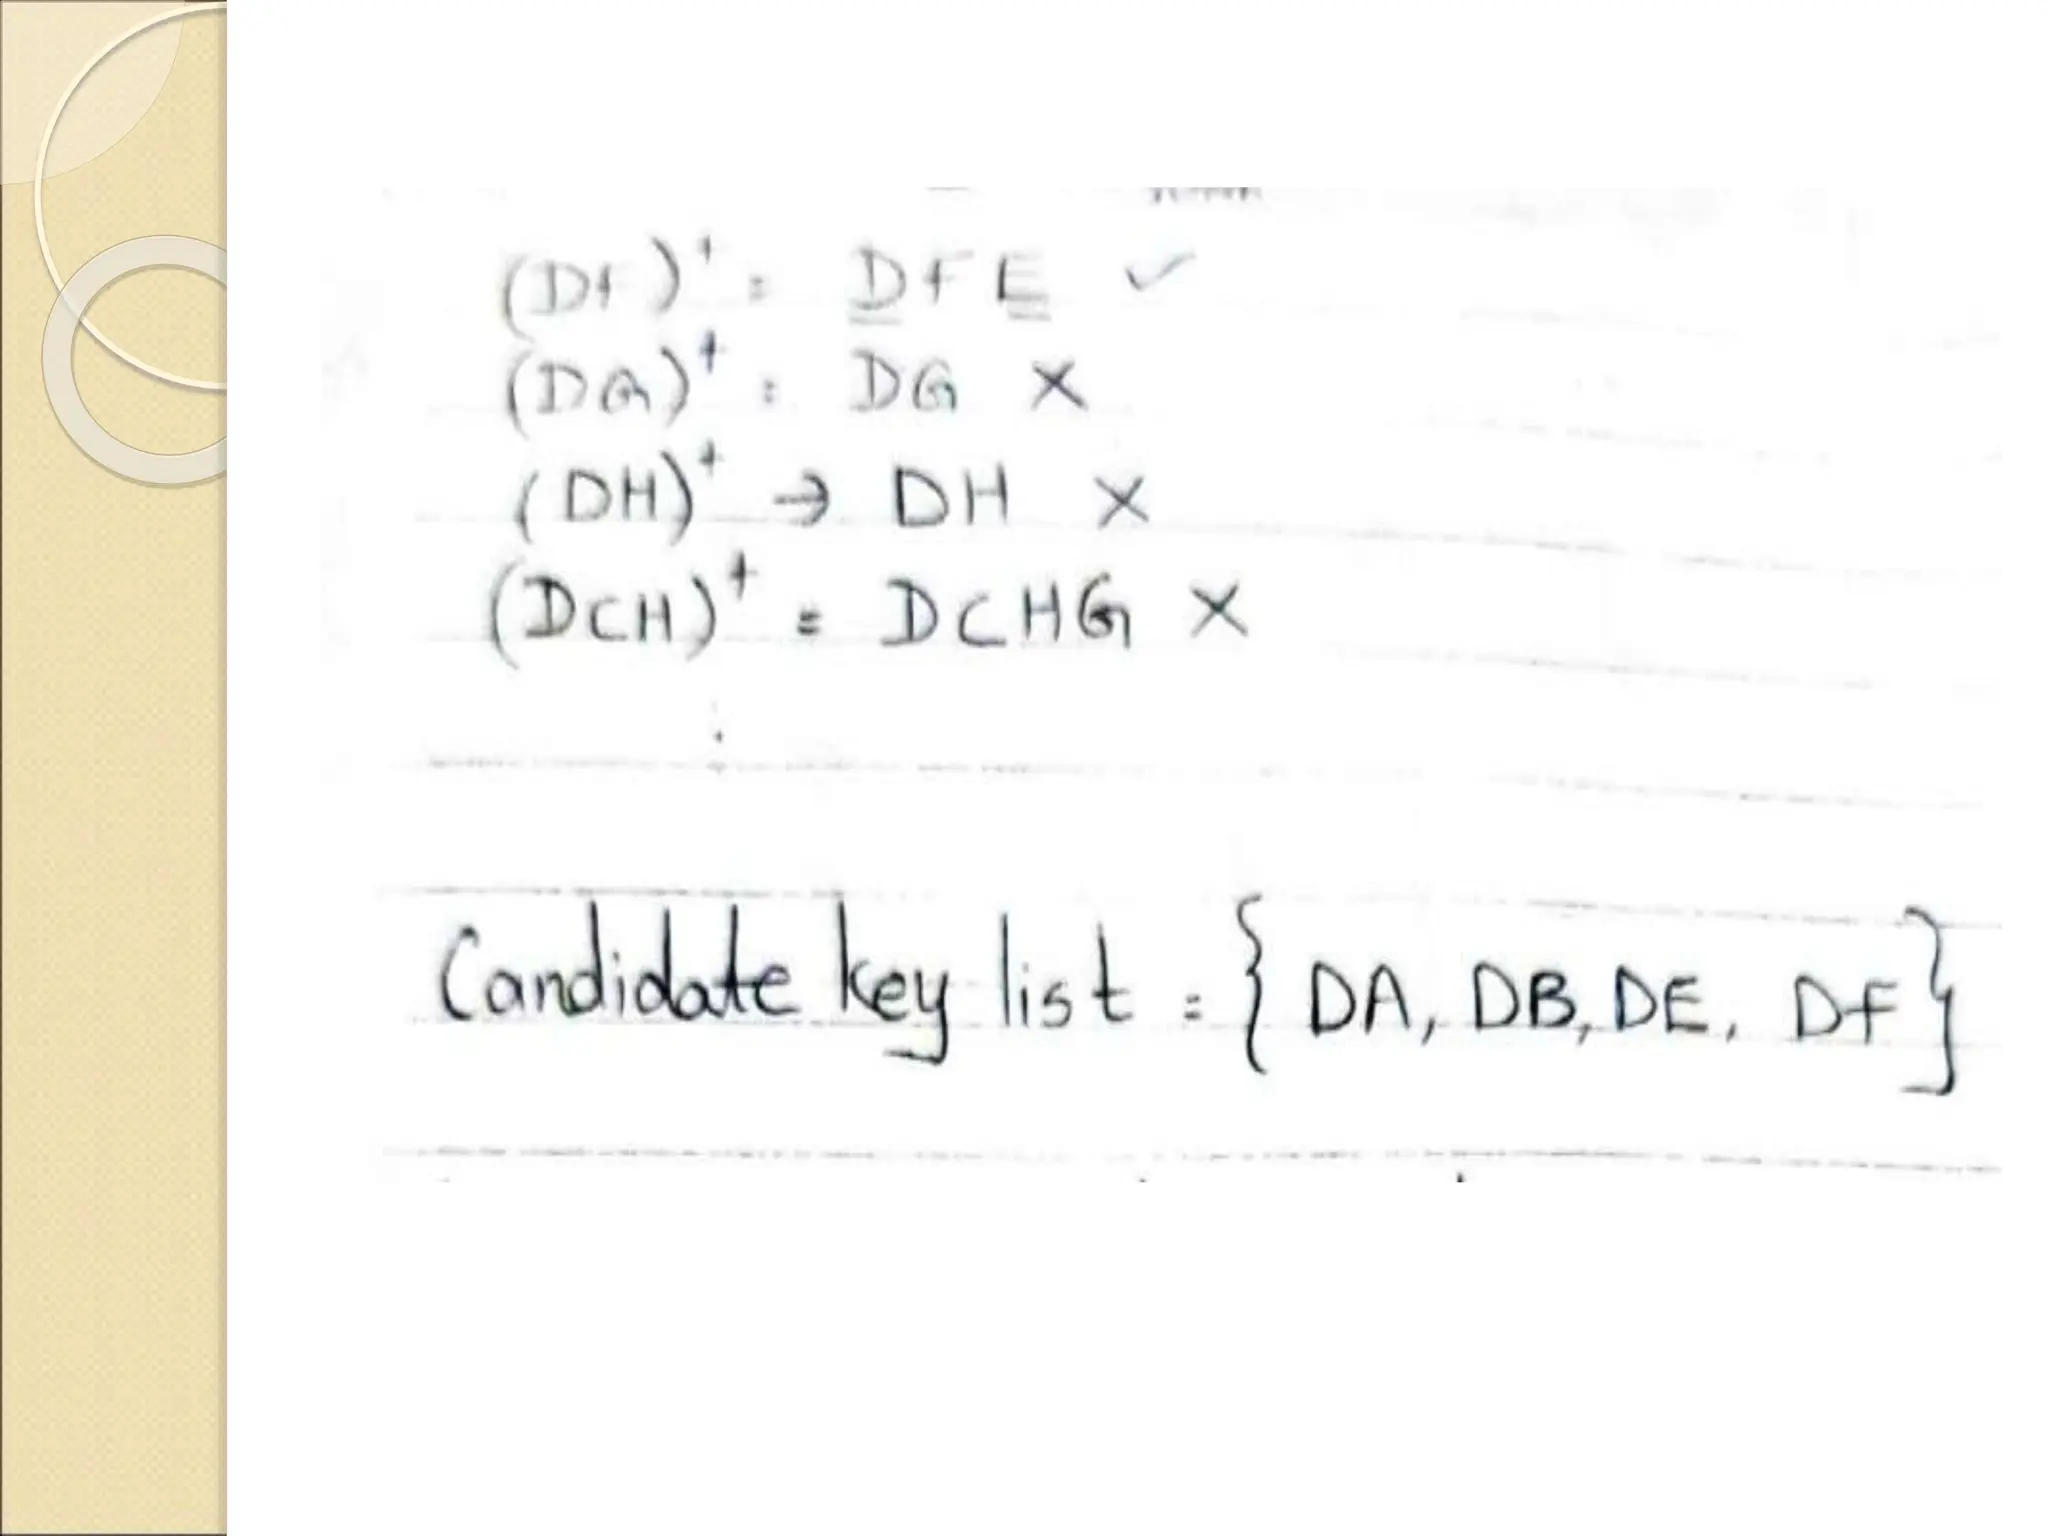 (Df)⁺ = DfE ✓
(DG)⁺ = DG ✗
(DH)⁺ → DH ✗
(DCH)⁺ = DCHG ✗
Candidate key list = {DA, DB, DE, Df}